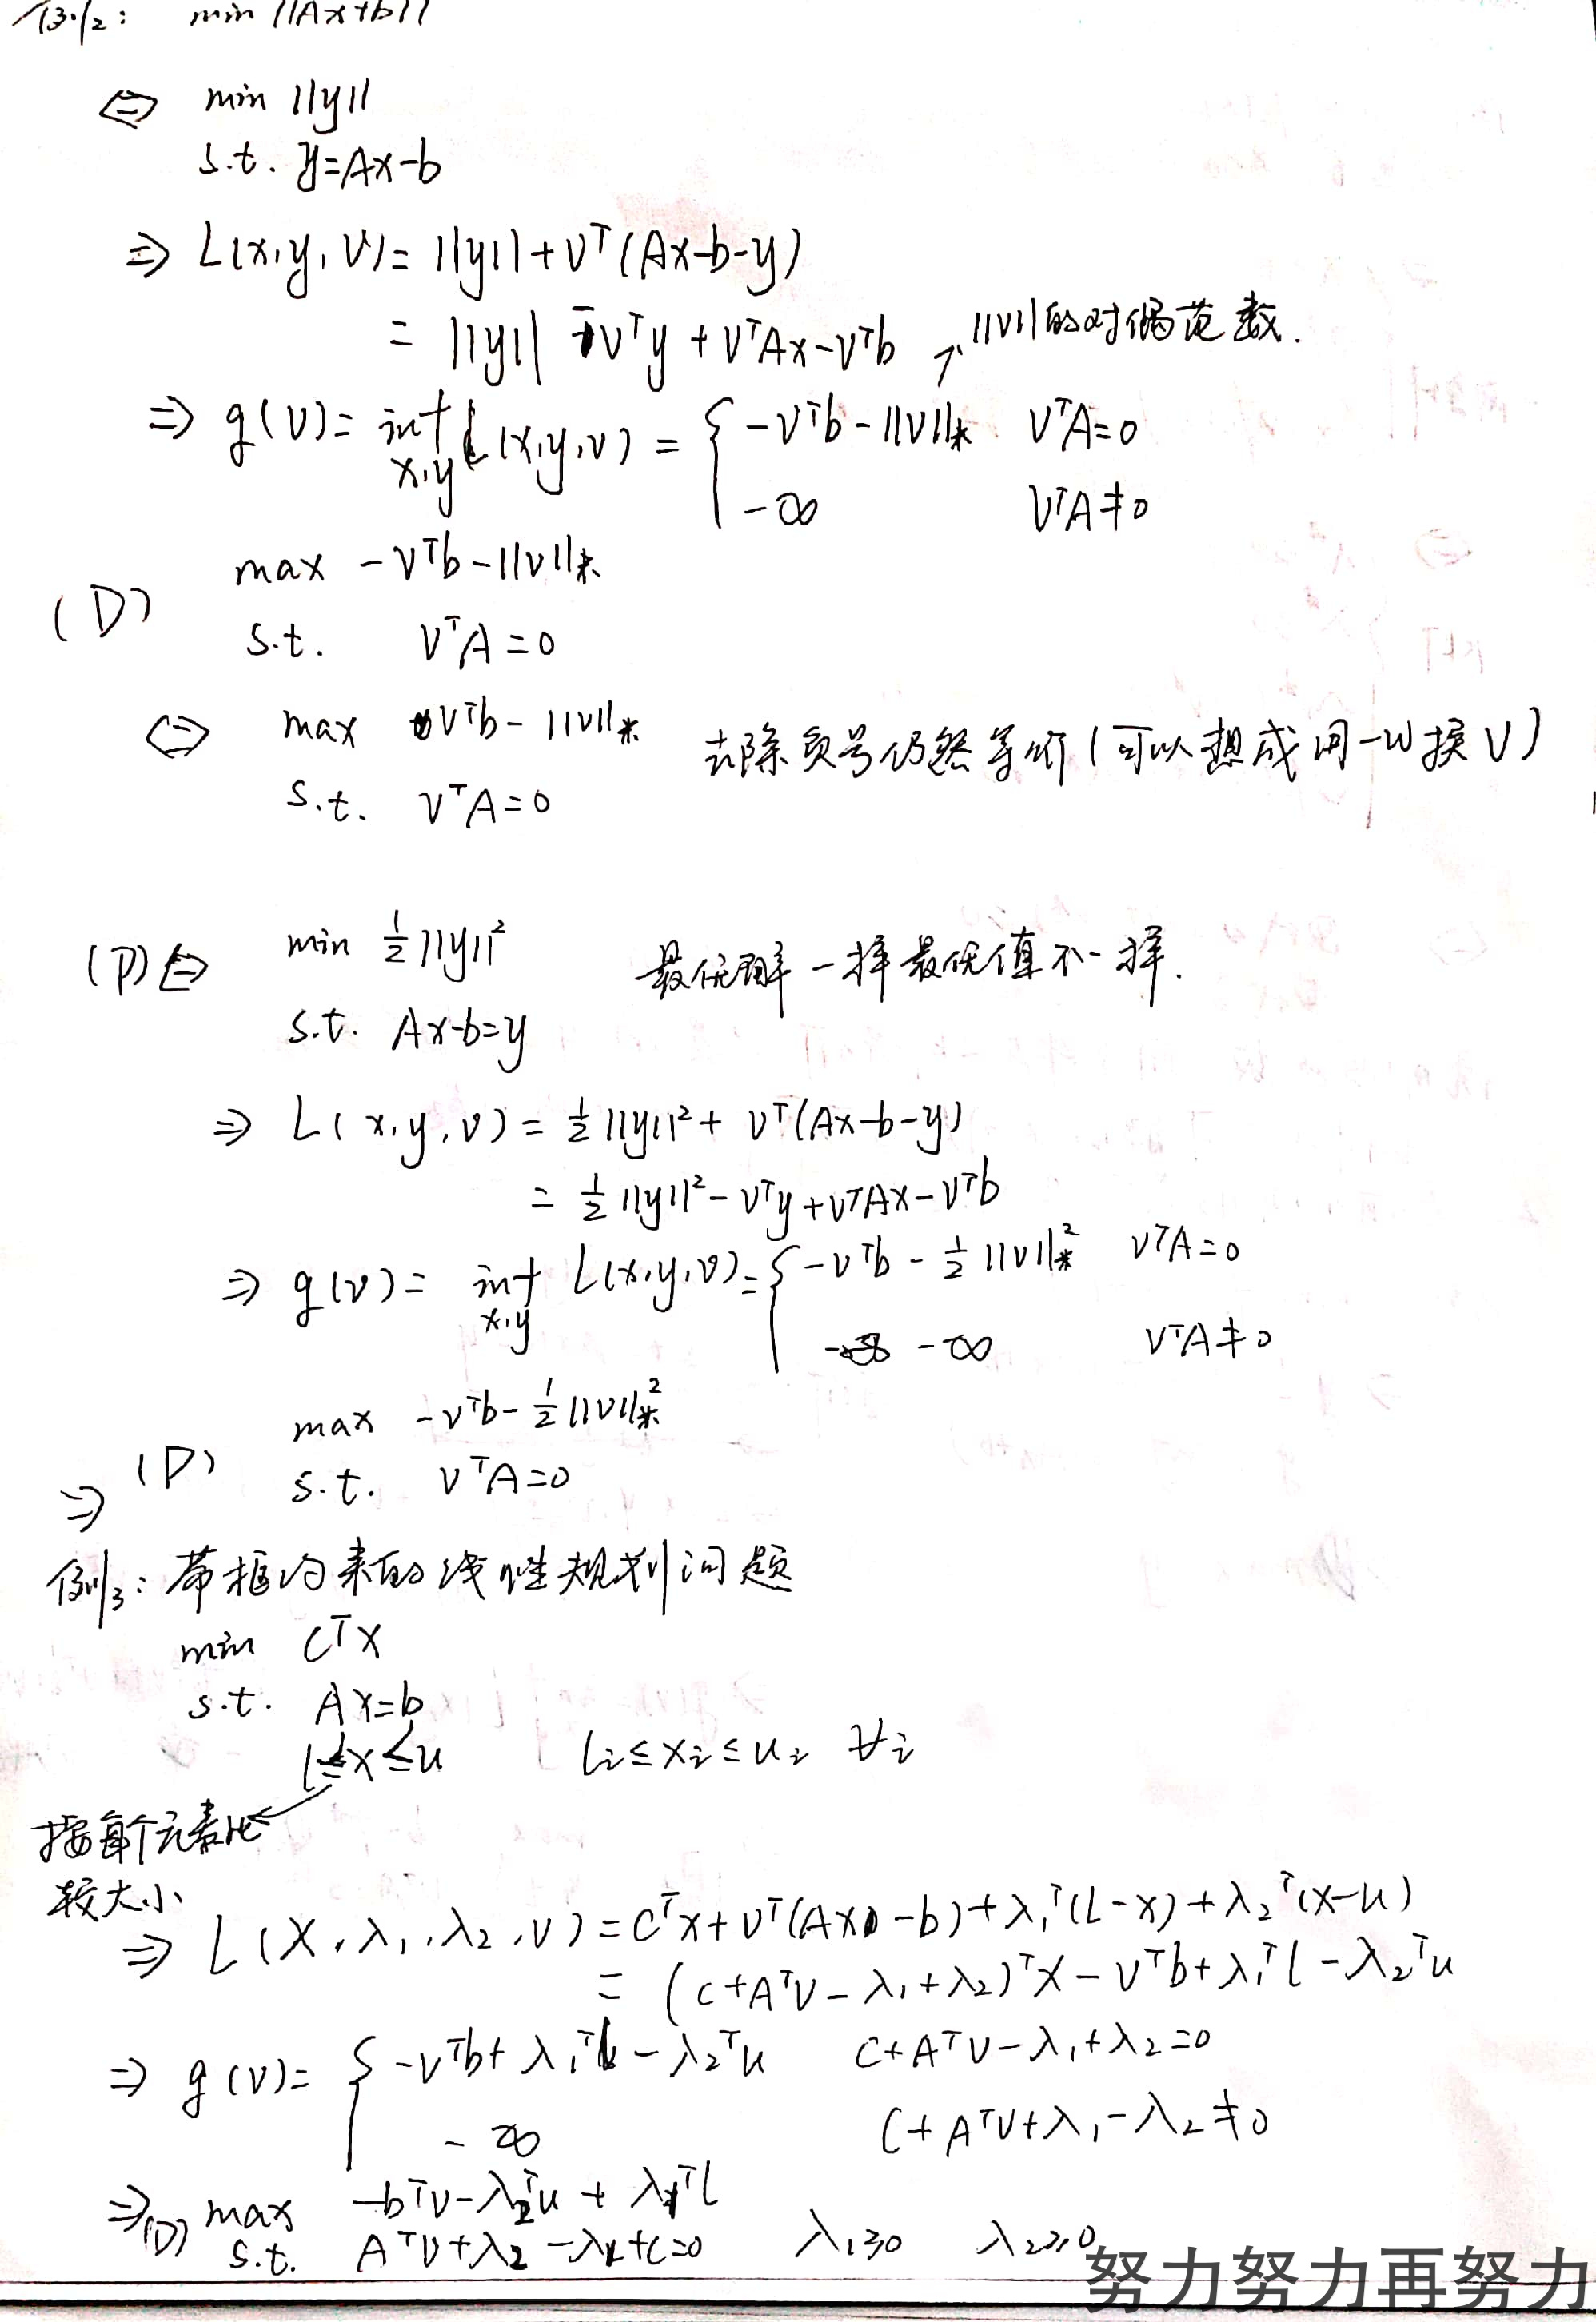 例2: min ||Ax+b||
⇔ min ||y||
s.t. y=Ax-b
⇒ L(x,y,ν)= ||y||+ν^T(Ax-b-y)
= ||y|| -ν^Ty + ν^TAx-ν^Tb ↗ ||ν||的对偶范数.
⇒ g(ν)= inf_{x,y} L(x,y,ν) = { -ν^Tb-||ν||_* ν^TA=0
-∞ ν^TA≠0
(D) max -ν^Tb-||ν||_*
s.t. ν^TA=0
⇔ max ν^Tb-||ν||_* 去除负号仍然等价(可以想成用-w换ν)
s.t. ν^TA=0
(P)⇔ min ½||y||² 最优解一样最优值不一样.
s.t. Ax-b=y
⇒ L(x,y,ν)= ½||y||²+ ν^T(Ax-b-y)
= ½||y||²-ν^Ty+ν^TAx-ν^Tb
⇒ g(ν)= inf_{x,y} L(x,y,ν)= { -ν^Tb - ½||ν||_*² ν^TA=0
-∞ ν^TA≠0
⇒ (D) max -ν^Tb-½||ν||_*²
s.t. ν^TA=0
例3: 带框约束的线性规划问题
min C^Tx
s.t. Ax=b
l≤x≤u l_i≤x_i≤u_i ∀i
按每个元素比
较大小
⇒ L(x,λ₁,λ₂,ν)=C^Tx+ν^T(Ax-b)+λ₁^T(l-x)+λ₂^T(x-u)
= (c+A^Tν-λ₁+λ₂)^Tx-ν^Tb+λ₁^Tl-λ₂^Tu
⇒ g(ν)= { -ν^Tb+λ₁^Tl-λ₂^Tu C+A^Tν-λ₁+λ₂=0
-∞ C+A^Tν+λ₁-λ₂≠0
⇒(D) max -b^Tν-λ₂^Tu+λ₁^Tl
s.t. A^Tν+λ₂-λ₁+C=0 λ₁≥0 λ₂≥0
努力努力再努力